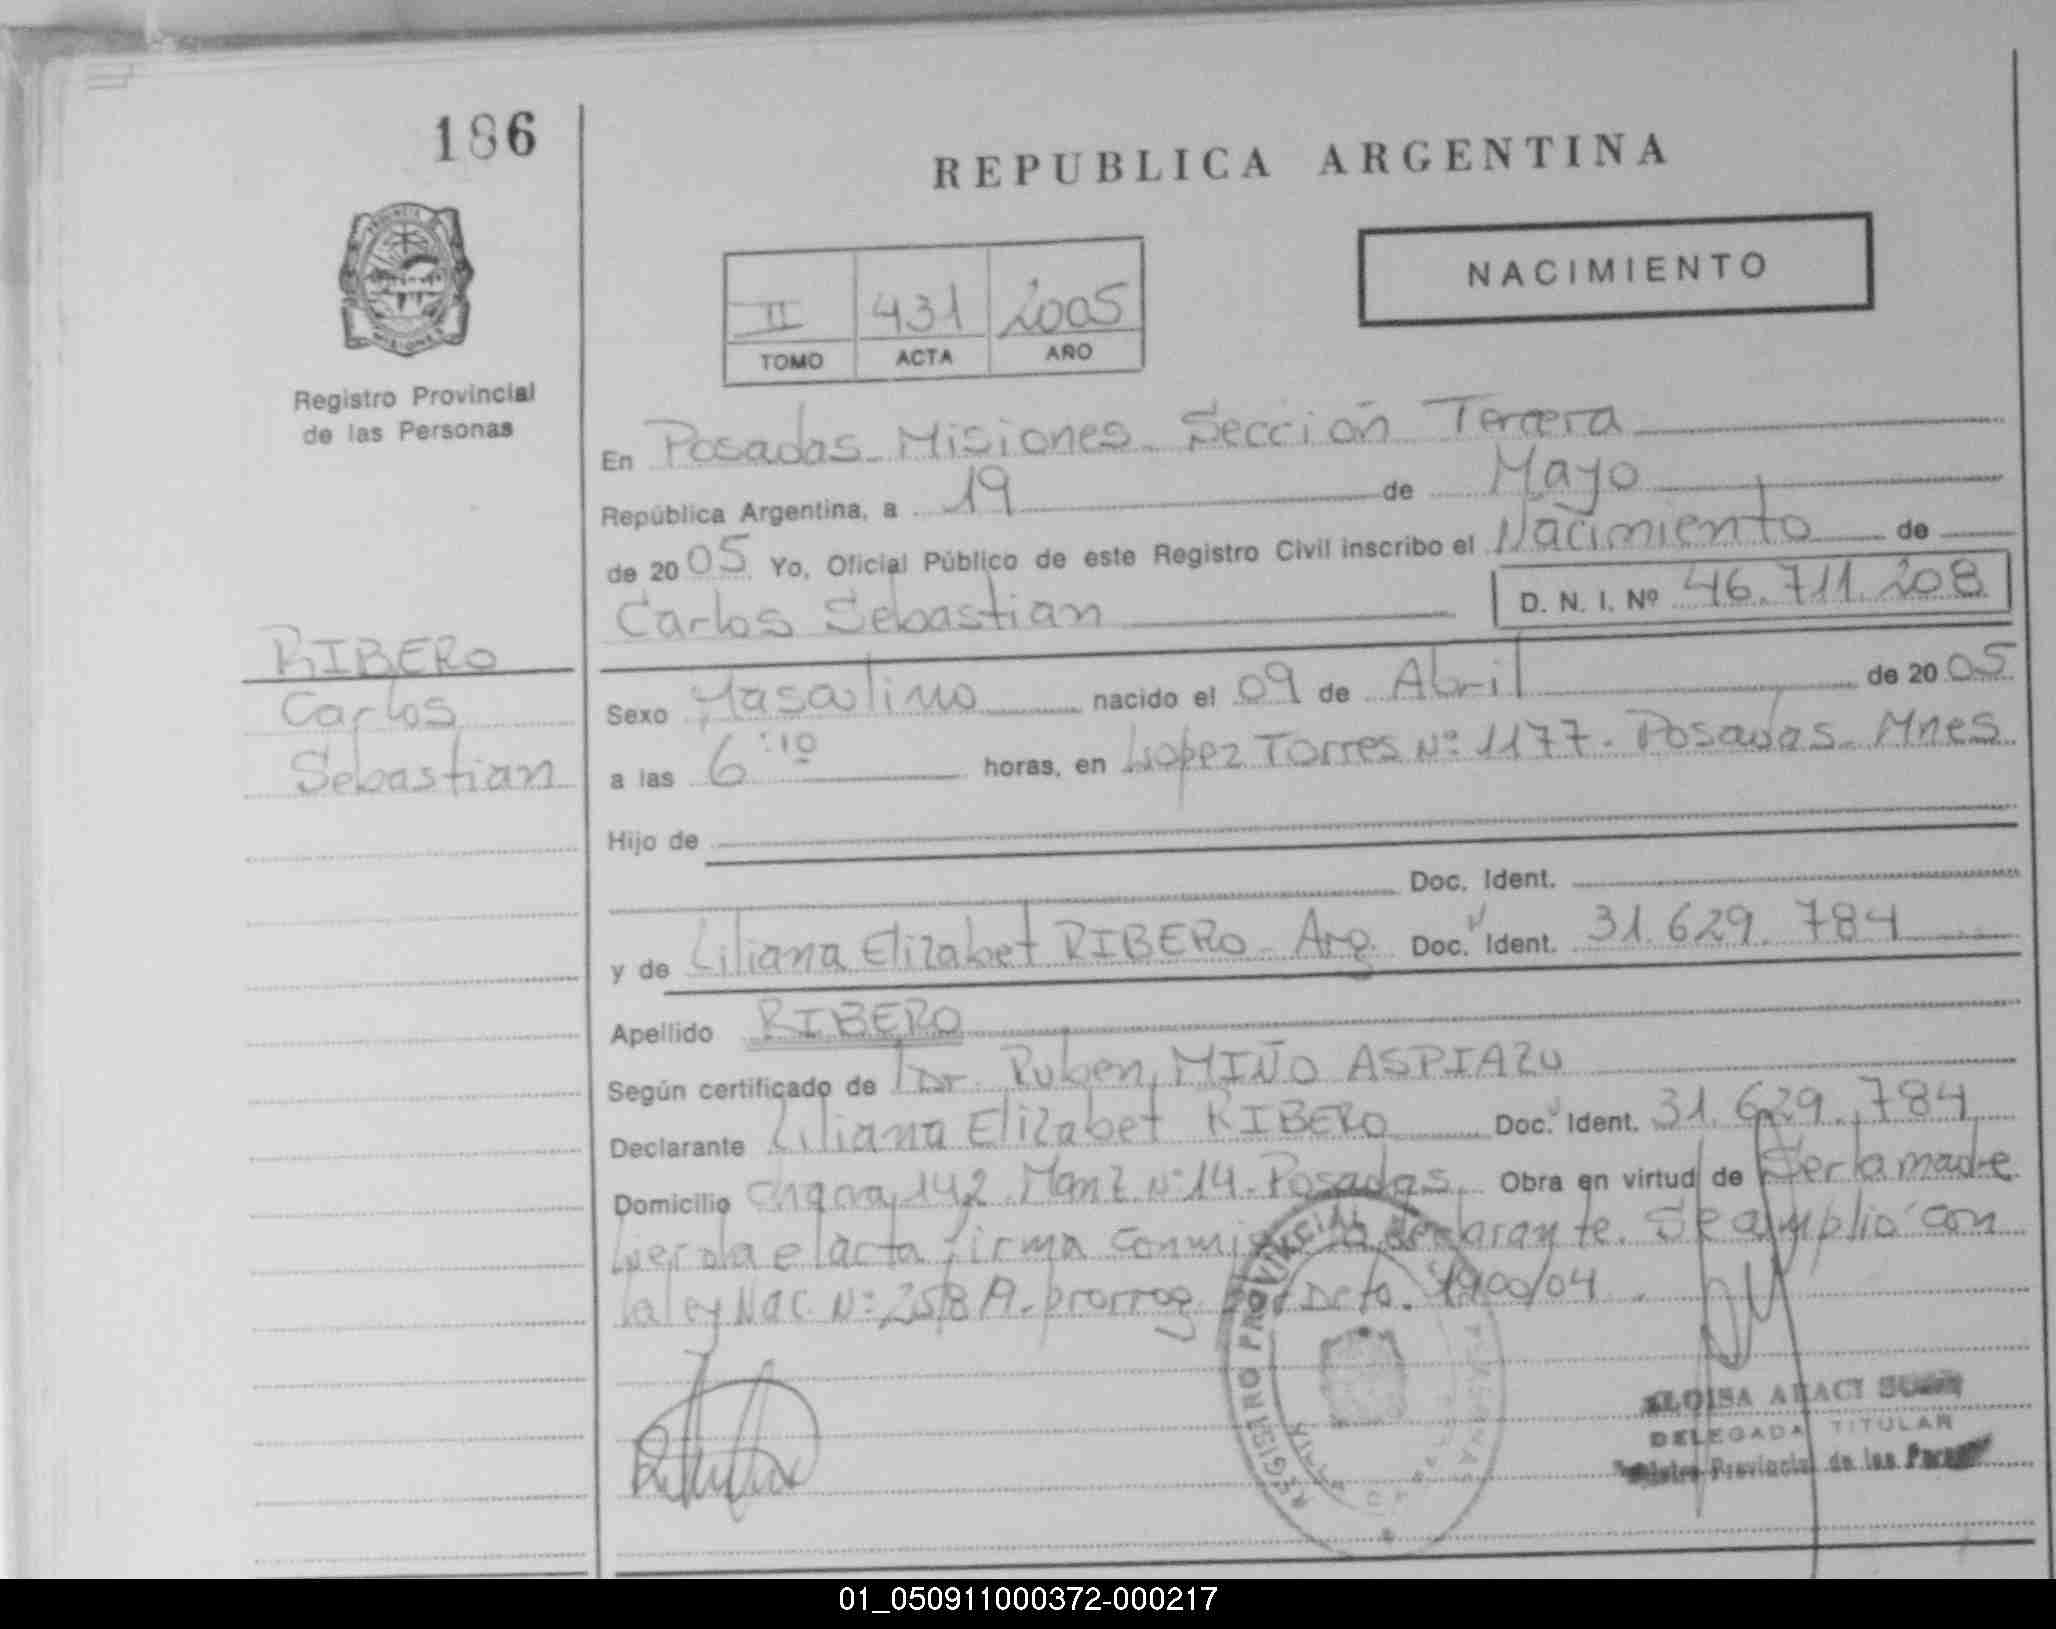 186
REPUBLICA ARGENTINA
NACIMIENTO
II 431 2005
TOMO ACTA AÑO
Registro Provincial
de las Personas
En Posadas Misiones Sección Tercera
República Argentina, a 19 de Mayo
de 2005 Yo, Oficial Público de este Registro Civil inscribo el Nacimiento de
Carlos Sebastian D. N. I. Nº 46.711.208
RIBERO
Carlos
Sebastian
Sexo Masculino nacido el 09 de Abril de 2005
a las 6:10 horas, en Lopez Torres Nº 1177. Posadas. Mnes
Hijo de
Doc. Ident.
y de Liliana Elizabet RIBERO Arg. Doc. Ident. 31.629.784
Apellido RIBERO
Según certificado de Dr. Ruben MIÑO ASPIAZU
Declarante Liliana Elizabet RIBERO Doc. Ident. 31.629.784
Domicilio Chacra 142 Manz. Nº 14. Posadas. Obra en virtud de Ser la madre
el acta firma conmigo la declarante. Se amplio con
la ley Nac. Nº prorrog. Dcto. 1900/04
REGISTRO PROVINCIAL DE LAS PERSONAS
DELEGADA TITULAR
Provincial de las
01_050911000372-000217